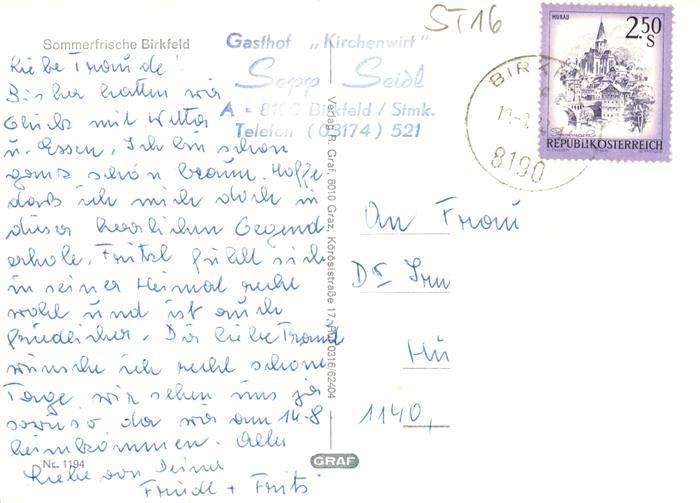 Sommerfrische Birkfeld
Gasthof „Kirchenwirt"
Sepp Seidl
A - 8190 Birkfeld / Stmk.
Telefon (03174) 521
ST16
MURAU
2.50
S
REPUBLIK ÖSTERREICH
8190
Liebe Traude!
Bisher hatten wir
Glück mit Wetter
u. Essen, Ich bin schon
ganz schön braun. Hoffe
dass ich mich doch in
dieser herrlichen Gegend
erhole. Fritzl fühlt sich
in seiner Heimat recht
wohl und ist auch
friedlicher. Dir liebe Traude
wünsche ich recht schöne
Tage wir sehen uns ja
sowiso da wir am 14-8
heimkommen. Alles
Liebe von Deiner
Friedl + Fritz
Nr. 1194
Verlag R. Graf, 8010 Graz, Körösistraße 17, 0316/62404
GRAF
An Frau
Dr
1140,